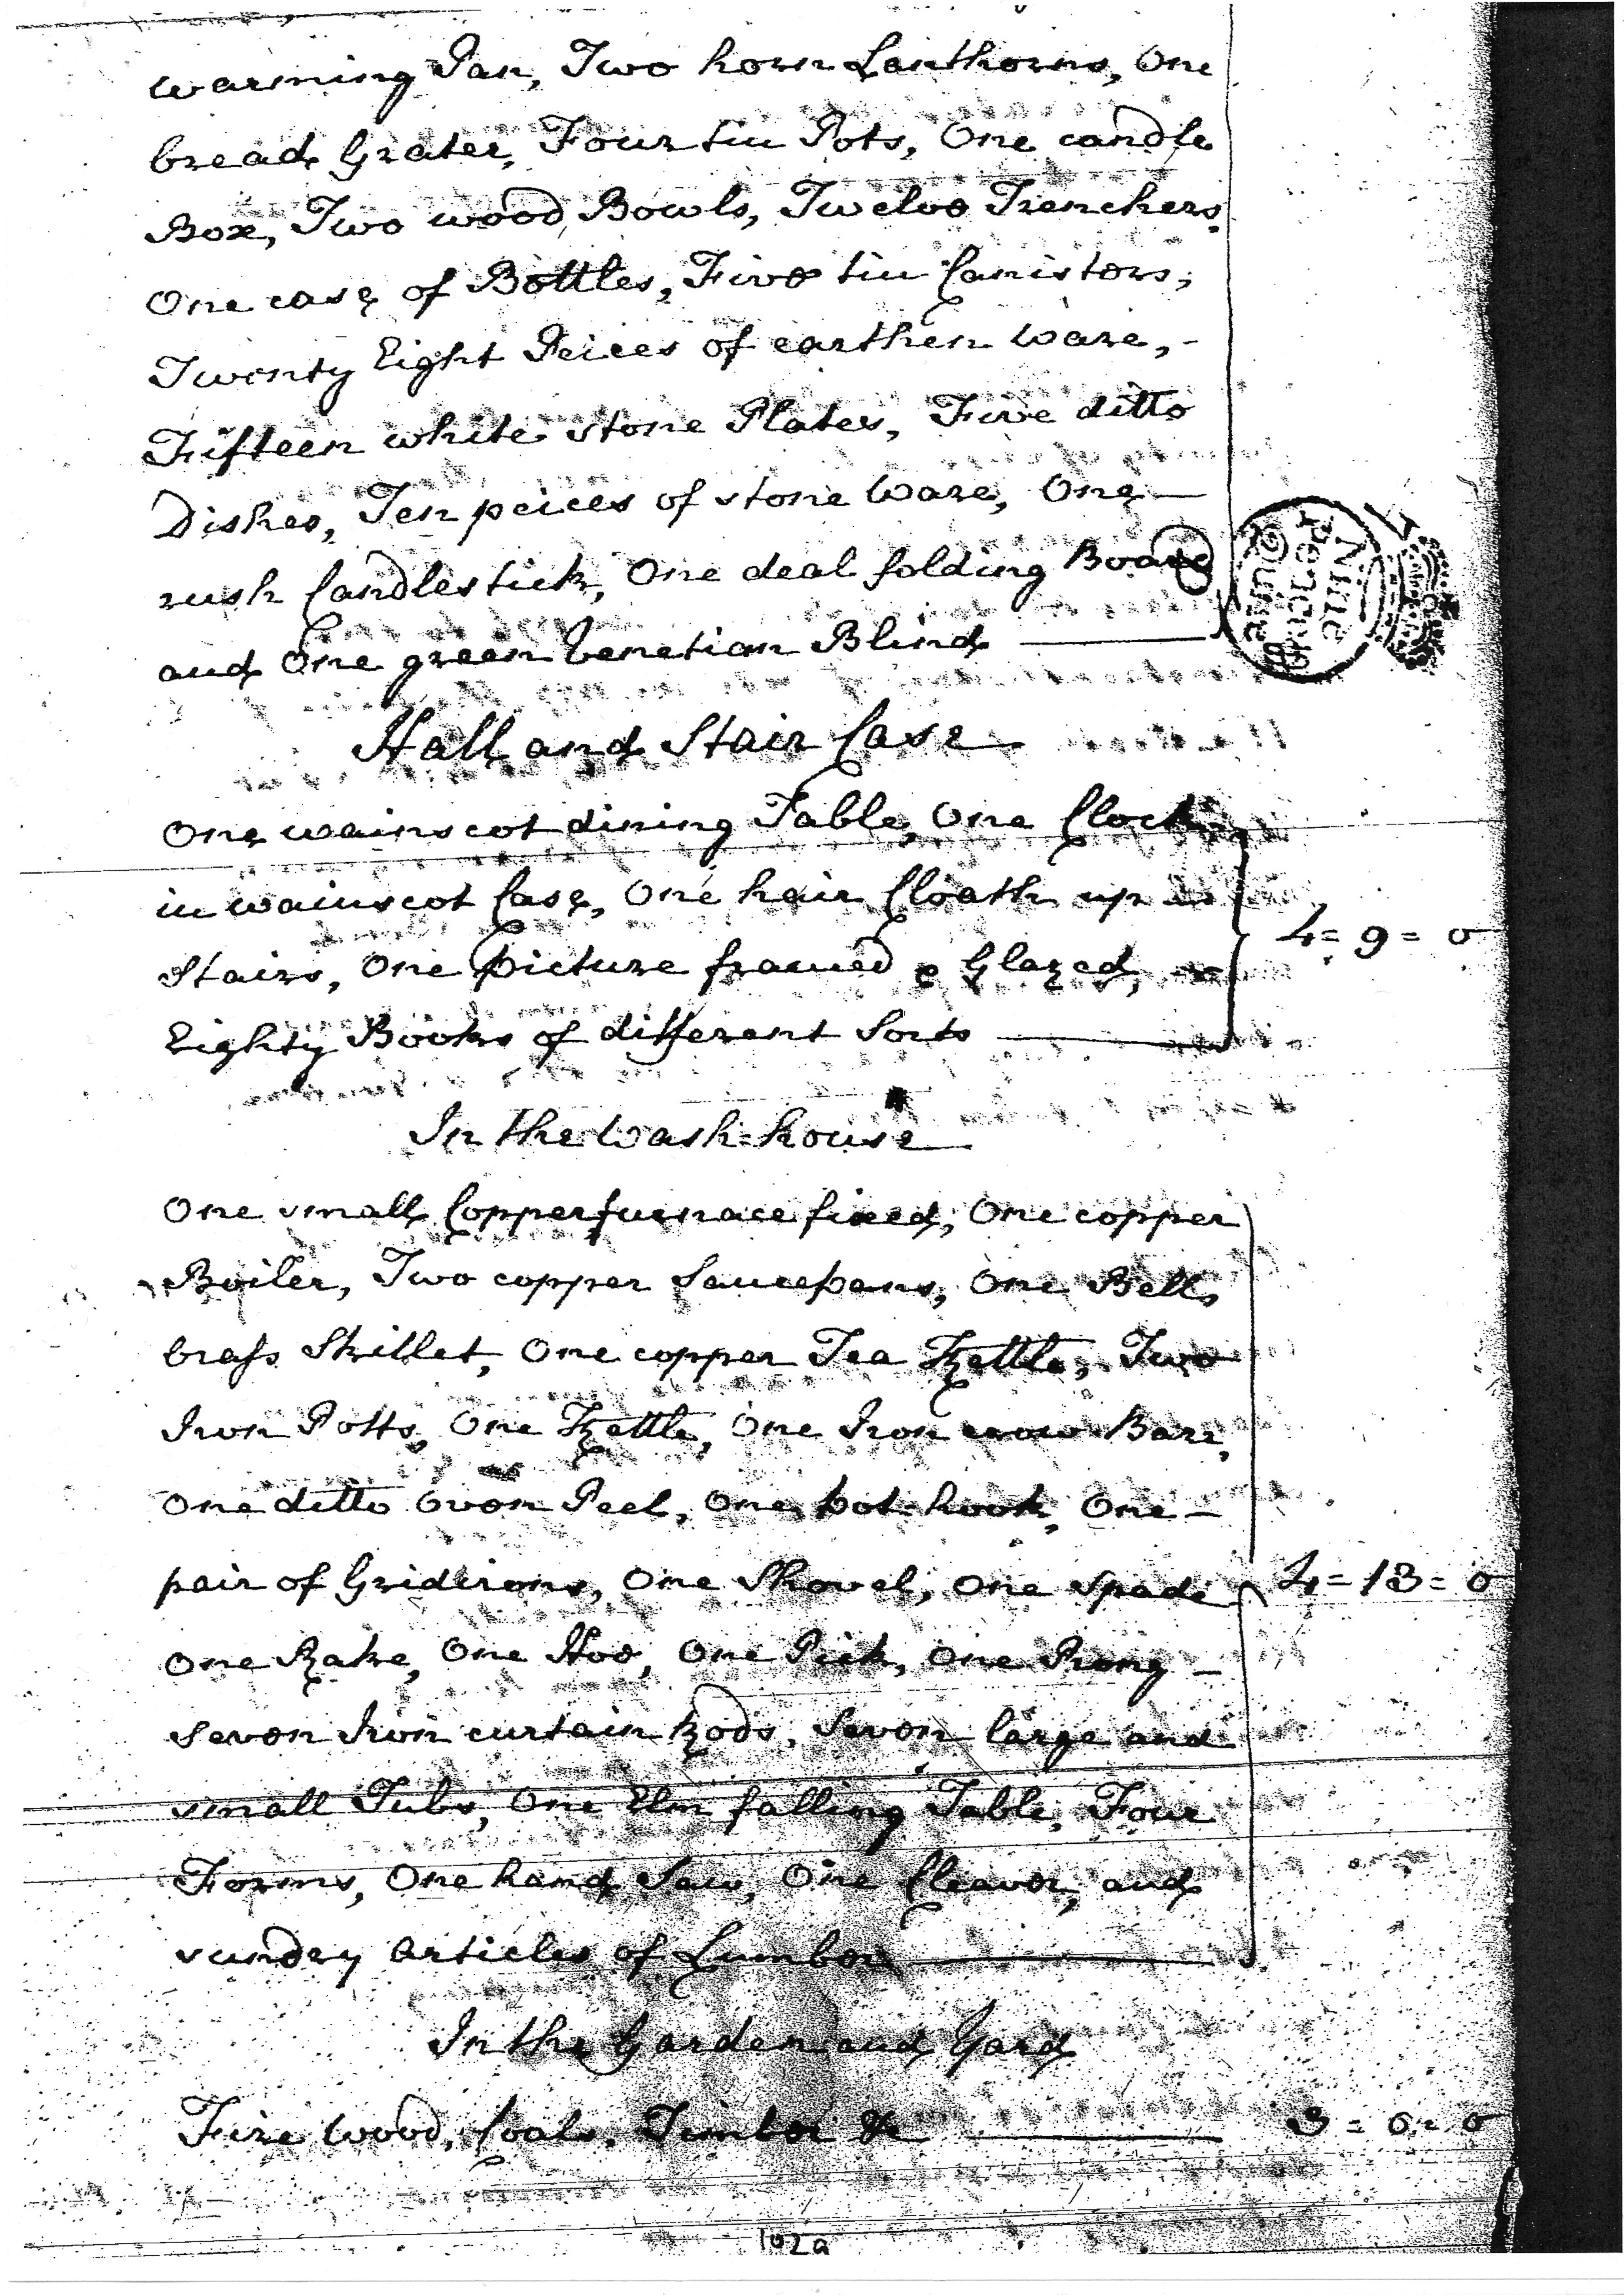 warming Pan, Two horn Lanthorns, One
bread Grater, Four tin Pots, One candle
Box, Two wood Bowls, Twelve Trenchers
One case of Bottles, Five tin Canistors,
Twenty Eight Peices of earthen Ware, -
Fifteen white stone Plates, Five ditto
Dishes, Ten peices of stone Ware, One —
rush Candlestick, One deal folding Board
and One green Venetian Blind
Nine
Pence
Hall and Stair Case
One wainscot dining Table, One Clock
in wainscot Case, One hair Cloath up
Stairs, One picture framed & Glazed,
Eighty Books of different Sorts
4 = 9 = 0
In the Wash-house
One small Copper furnace fixed, One copper
Boiler, Two copper Saucepans, One Bell
brass Skillet, One copper Tea Kettle, Two
Iron Potts, One Kettle, One Iron crow Barr,
One ditto Oven Peel, One pot-hook, One —
pair of Gridirons, One Shovel, One Spade
4 = 13 = 0
One Rake, One Hoe, One Pick, One Prong —
Seven Iron curtain Rods, Seven large and
small Tubs, One Elm falling Table, Four
Forms, One hand Saw, One Cleaver, and
sundry Articles of Lumber
In the Garden and Yard
Fire Wood, Coals, Timber &c
3 = 0 = 0
102a